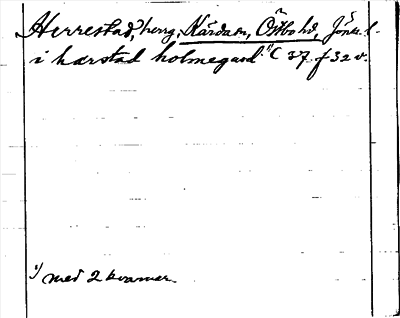 Herrestad, herrg. Kärda sn, Östbo hd, Jönk. l.
i hærstad holmegard. 1) C 37 f 32 v.
1) med 2 kvarnar